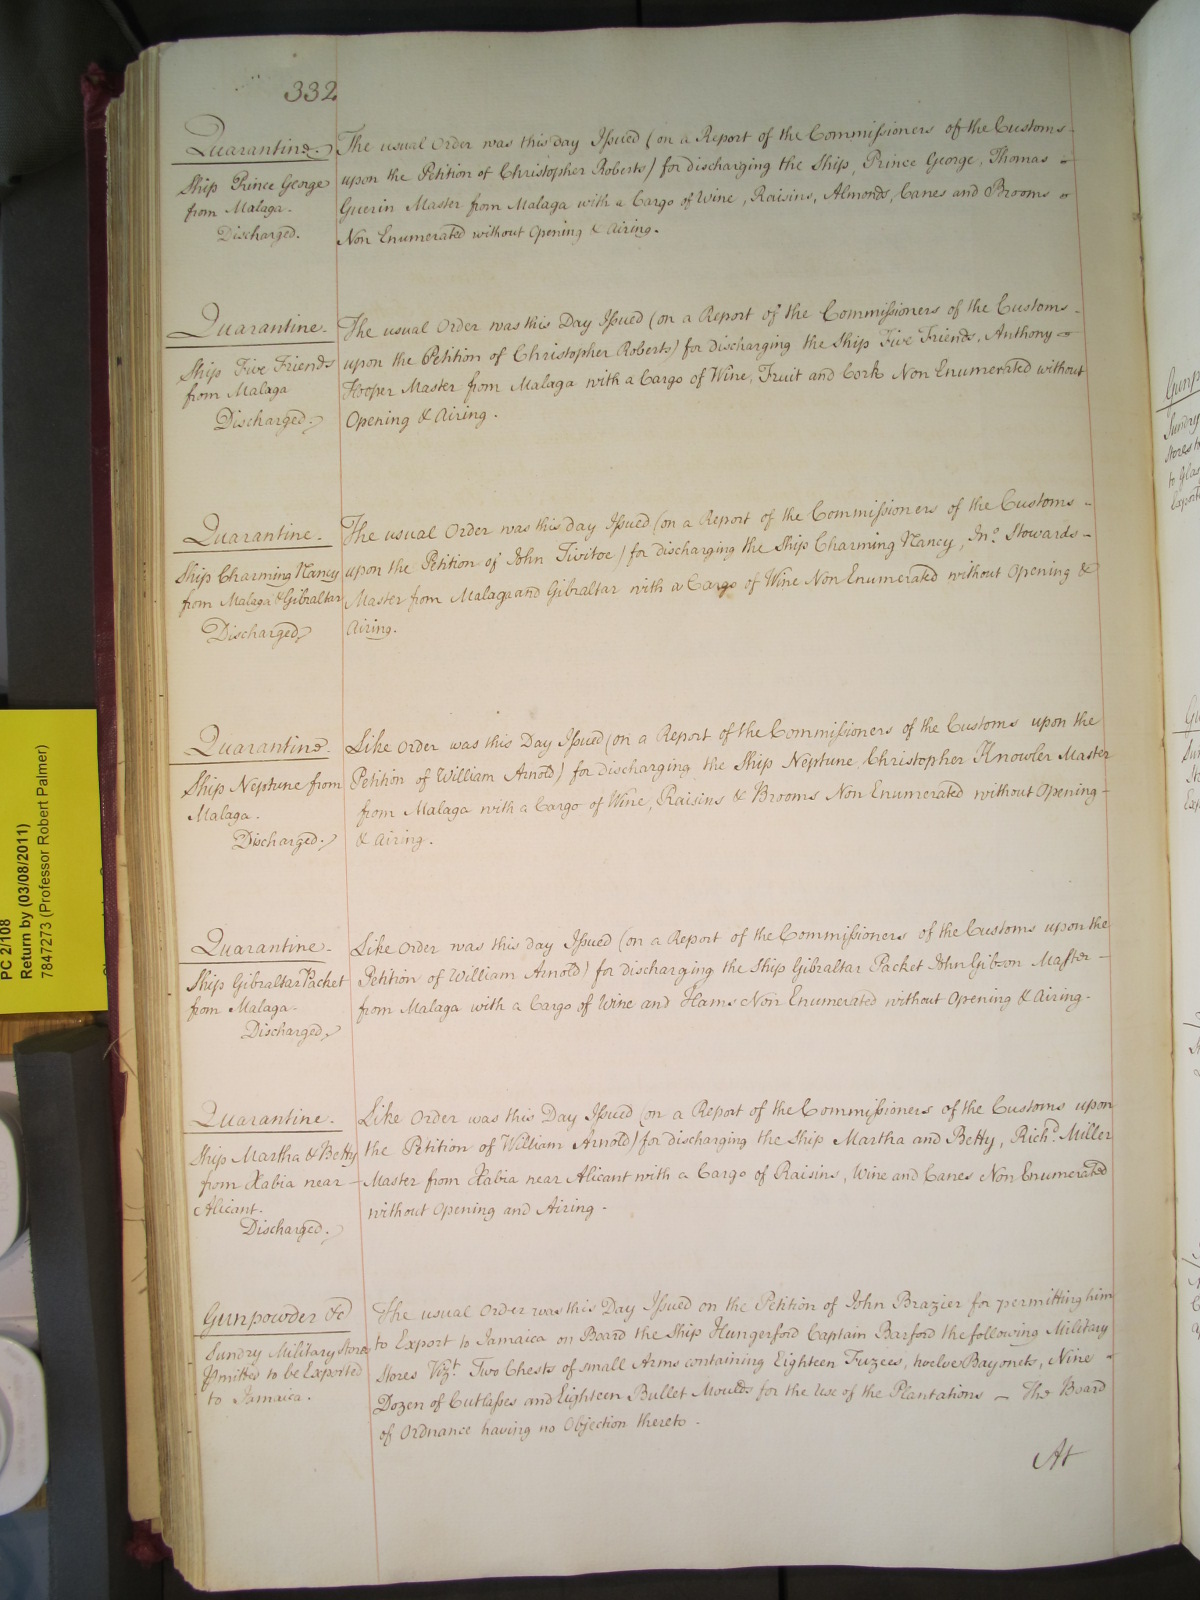 332
Quarantine.
Ship Prince George
from Malaga.
Discharged.
The usual Order was this day Issued (on a Report of the Commissioners of the Customs
upon the Petition of Christopher Roberts) for discharging the Ship, Prince George, Thomas
Guerin Master from Malaga with a Cargo of Wine, Raisins, Almonds, Canes and Brooms
Non Enumerated without Opening & Airing.
Quarantine.
Ship Five Friends
from Malaga
Discharged.
The usual Order was this Day Issued (on a Report of the Commissioners of the Customs
upon the Petition of Christopher Roberts) for discharging the Ship Five Friends, Anthony
Hooper Master from Malaga with a Cargo of Wine, Fruit and Cork Non Enumerated without
Opening & Airing.
Quarantine.
Ship Charming Nancy
from Malaga & Gibraltar
Discharged
The usual Order was this day Issued (on a Report of the Commissioners of the Customs
upon the Petition of John Tivitoe) for discharging the Ship Charming Nancy, Jno. Stowards
Master from Malaga and Gibraltar with a Cargo of Wine Non Enumerated without Opening &
Airing.
Quarantine.
Ship Neptune from
Malaga.
Discharged.
Like Order was this Day Issued (on a Report of the Commissioners of the Customs upon the
Petition of William Arnold) for discharging the Ship Neptune, Christopher Knowler Master
from Malaga with a Cargo of Wine, Raisins & Brooms Non Enumerated without Opening
& Airing.
Quarantine.
Ship Gibraltar Packet
from Malaga.
Discharged
Like Order was this day Issued (on a Report of the Commissioners of the Customs upon the
Petition of William Arnold) for discharging the Ship Gibraltar Packet John Gibson Master
from Malaga with a Cargo of Wine and Hams Non Enumerated without Opening & Airing.
Quarantine.
Ship Martha & Betty
from Xabia near
Alicant.
Discharged.
Like Order was this Day Issued (on a Report of the Commissioners of the Customs upon
the Petition of William Arnold) for discharging the Ship Martha and Betty, Richd. Miller
Master from Xabia near Alicant with a Cargo of Raisins, Wine and Canes Non Enumerated
without Opening and Airing.
Gunpowder &c
Sundry Military Stores
pmitted to be Exported
to Jamaica.
The usual Order was this Day Issued on the Petition of John Brazier for permitting him
to Export to Jamaica on Board the Ship Hungerford Captain Barford the following Military
Stores Vizt. Two Chests of small Arms containing Eighteen Fuzees, twelve Bayonets, Nine
Dozen of Cutlasses and Eighteen Bullet Moulds for the Use of the Plantations — The Board
of Ordnance having no Objection thereto.
At
PC 2/108
Return by (03/08/2011)
7847273 (Professor Robert Palmer)